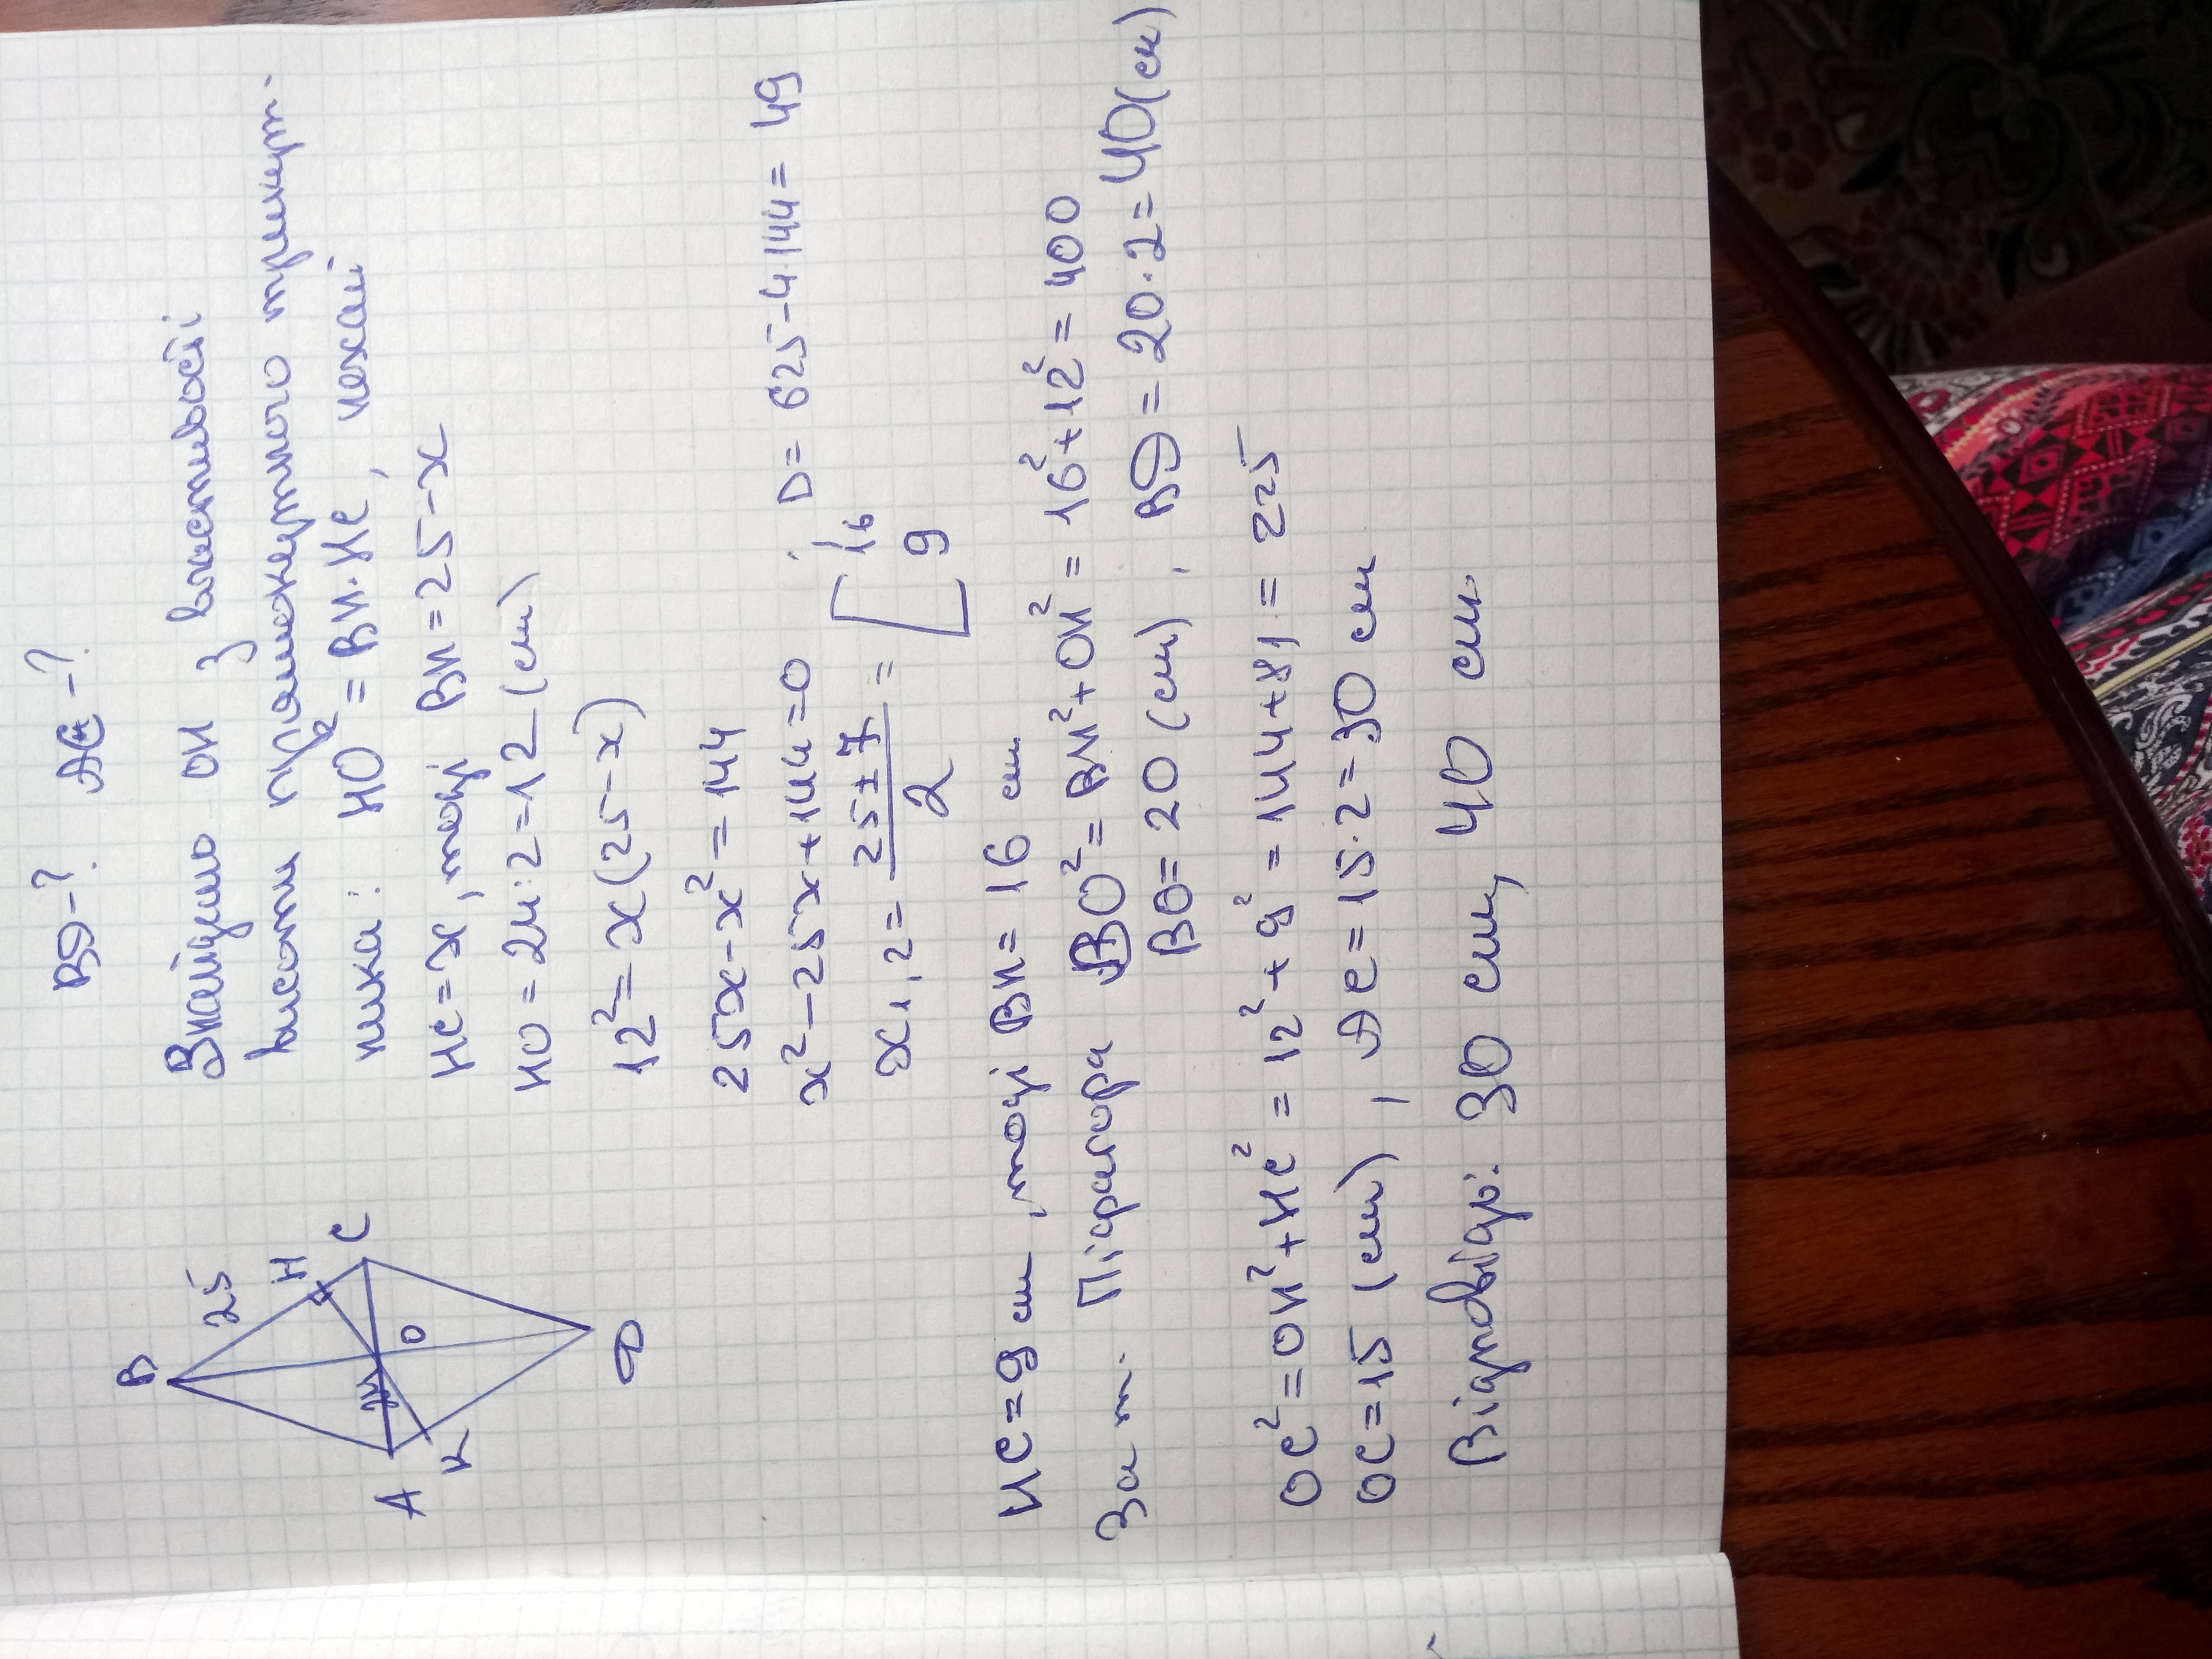 BD-? AC-?
Знайдемо ОН з властивості
висоти прямокутного трикут-
ника: HO² = BH·HC, нехай
HC = x, тоді BH = 25-x
HO = 24:2 = 12 (см)
12² = x(25-x)
25x - x² = 144
x² - 25x + 144 = 0 D = 625 - 4·144 = 49
x₁,₂ = (25±7)/2 = [16 9
B
25
H
C
24
O
A
K
D
HC = 9 см, тоді BH = 16 см
За т. Піфагора BO² = BH² + OH² = 16² + 12² = 400
BO = 20 (см), BD = 20·2 = 40 (см)
OC² = OH² + HC² = 12² + 9² = 144 + 81 = 225
OC = 15 (см), AC = 15·2 = 30 см
Відповідь: 30 см, 40 см.